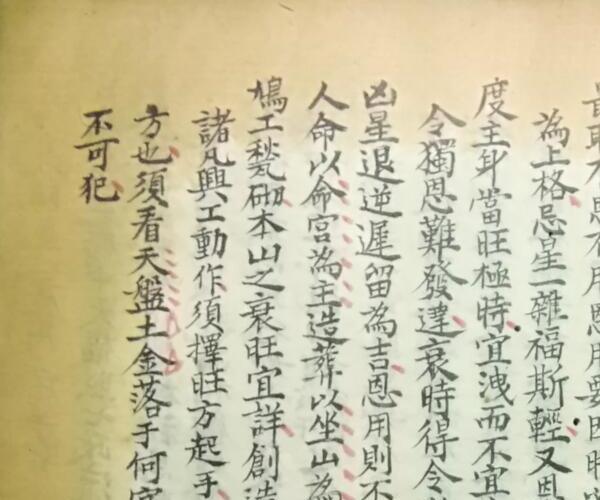 最取不思不用恩用要因時
為上格忌星一雜福斯輕又恩
度主身當旺極時宜洩而不宜
令獨恩難發達衰時得令
凶星退逆遲留為吉恩用則不
人命以命宮為主造葬以坐山為
鳩工甃砌本山之衰旺宜詳創造
諸凡興工動作須擇旺方起手
方也須看天盤土金落于何宮
不可犯